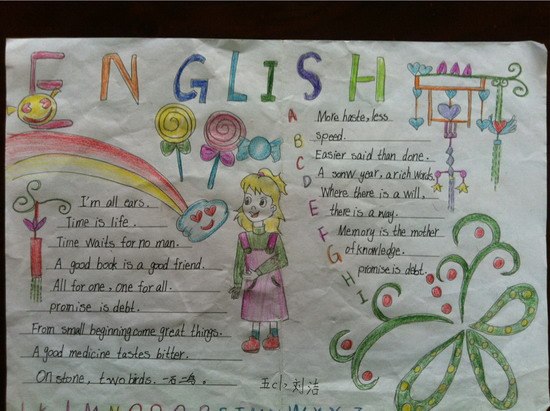 ENGLISH
I'm all ears.
Time is life.
Time waits for no man.
A good book is a good friend.
All for one, one for all.
promise is debt.
From small beginning come great things.
A good medicine tastes bitter.
On stone, two birds. 一石二鸟。
A
B
C
D
E
F
G
H
I
More haste, less
speed.
Easier said than done.
A sonw year, a rich words
Where there is a will,
there is a way.
Memory is the mother
of knowledge.
promise is debt.
五〈1〉刘洁